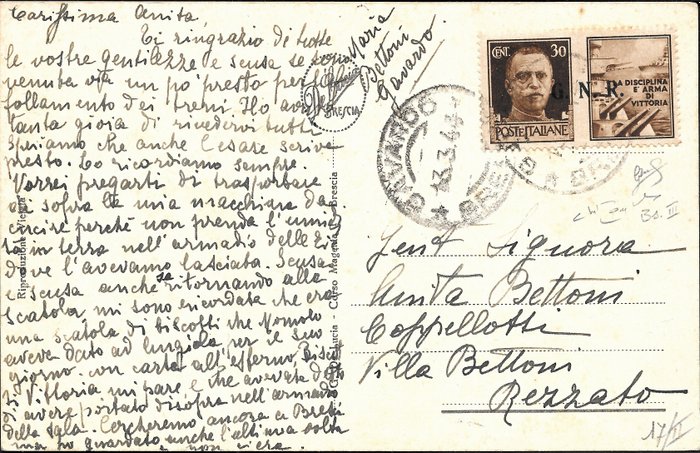 Carissima Anita,
Ti ringrazio di tutte
le vostre gentilezze e scusa se sono
venuta via un po' presto per l'
follamento dei treni Ho avuto
tanta gioia di rivedervi tutti
Speriamo che anche Cesare scriva
presto. Lo ricordiamo sempre.
Vorrei pregarti di trasportare
di sopra la mia macchina da
cucire perchè non prenda l'umidi
tà in terra nell'armadio delle
dove l'avevamo lasciata. Scusa
e scusa anche se ritornando alla
scatola, mi sono ricordata che era
una scatola di biscotti che Momolo
aveva dato ad Angiola per il suo
giorno. con carta all'esterno,
Vittoria mi pare e che avevate detto
di avere portato disopra nell'armadio
della sala. Cercheremo ancora a Brescia
ma ho guardato anche l'altima volta
e non c'era.
Maria
Bettoni
Gavardo.
BRESCIA
Riproduzione Vietata
Lucia - Corso Magenta - Brescia
GAVARDO
13.3.44
BRESCIA
CENT. 30
POSTE ITALIANE
LA DISCIPLINA
E' ARMA DI
VITTORIA
G. N. R.
Gent. Signora
Anita Bettoni
Cappellotti
Villa Bettoni
Rezzato
17/II